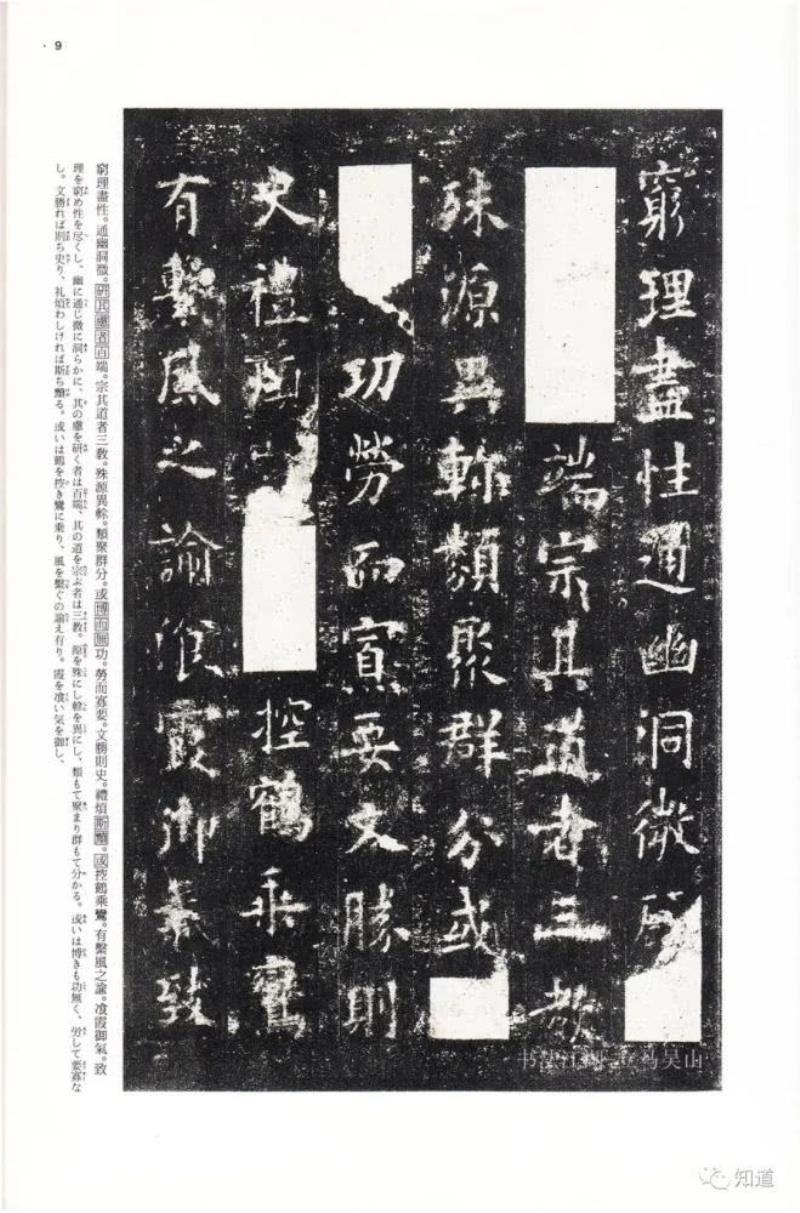 9
窮理盡性通幽洞微研
端宗其道者三教
殊源異軫類聚群分或
功勞而寡要文勝則
史禮煩控鶴乘鸞
有繫風之諭飡霞御氣致
窮理盡性。通幽洞微。研其慮者百端。宗其道者三教。殊源異軫。類聚群分。或博而無功。勞而寡要。文勝則史。禮煩斯黷。或控鶴乘鸞。有繫風之諭。飡霞御氣。致
理を窮め性を尽くし、幽に通じ微に洞らかに、其の慮を研く者は百端、其の道を宗ぶ者は三教。源を殊にし軫を異にし、類もて聚まり群もて分かる。或いは博きも功無く、労して要寡な
し。文勝れば則ち史り、礼煩わしければ斯ち黷る。或いは鶴を控き鸞に乗り、風を繫ぐの諭え有り。霞を飡い気を御し、
知道